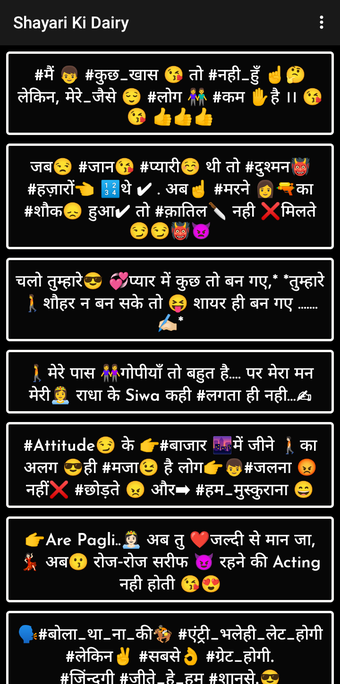 Shayari Ki Dairy
#मैं 👦 #कुछ_खास 😘 तो #नही_हुँ ☝️🤔
लेकिन, मेरे_जैसे 😌 #लोग 👫 #कम ✋है ।। 😘
😘 👍👍👍
जब😒 #जान😘 #प्यारी☺️ थी तो #दुश्मन👹
#हज़ारों👈 🔢थे ✔️ . अब☝️ #मरने 👩🔫का
#शौक😞 हुआ✔️ तो #क़ातिल🔪 नही ❌मिलते
😏😏👹👿
चलो तुम्हारे😎 💞प्यार में कुछ तो बन गए,* *तुम्हारे
🚶शौहर न बन सके तो 😝 शायर ही बन गए .......
✍🏻*
🚶 मेरे पास 👭गोपीयाँ तो बहुत है.... पर मेरा मन
मेरी👸 राधा के Siwa कही #लगता ही नही...✍️
#Attitude😏 के 👉#बाजार 🌆में जीने 🚶का
अलग 😎ही #मजा😉 है लोग👉👦#जलना 😡
नहीं❌ #छोड़ते 😠 और➡️ #हम_मुस्कुराना 😄
👉Are Pagli..👸🏻 अब तु ❤️जल्दी से मान जा,
💃 अब😗 रोज-रोज सरीफ 😈 रहने की Acting
नही होती 😘😍
🗣️#बोला_था_ना_की🏇 #एंट्री_भलेही_लेट_होगी
#लेकिन✌️ #सबसे👌 #ग्रेट_होगी.
#जिंदगी #जीते_हे_हम #शानसे.😎